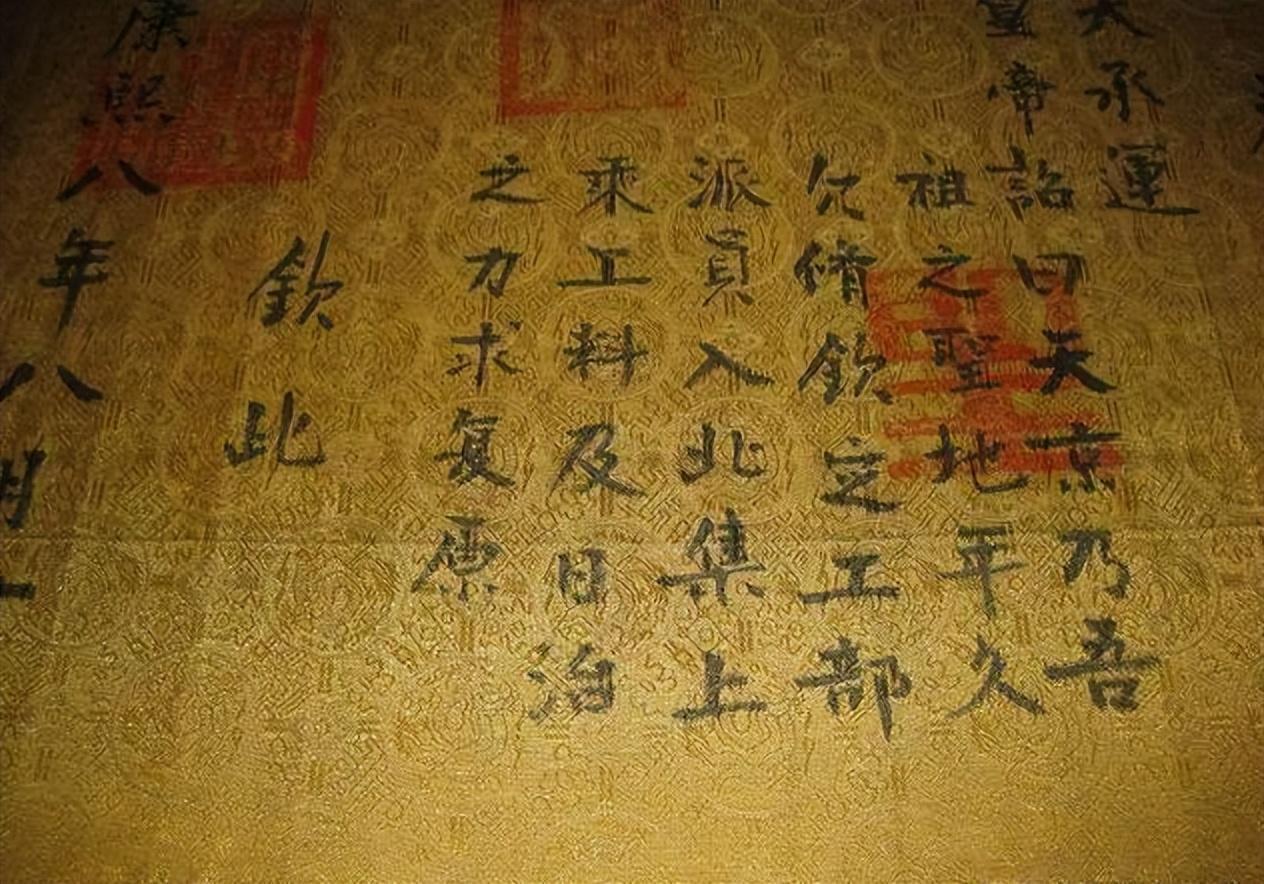 天承運
皇帝詔曰天京乃吾
祖之聖地平久
允脩欽之工部
派員入此集上
乘工料及日治
之力求复原
欽此
康熙八年八月上